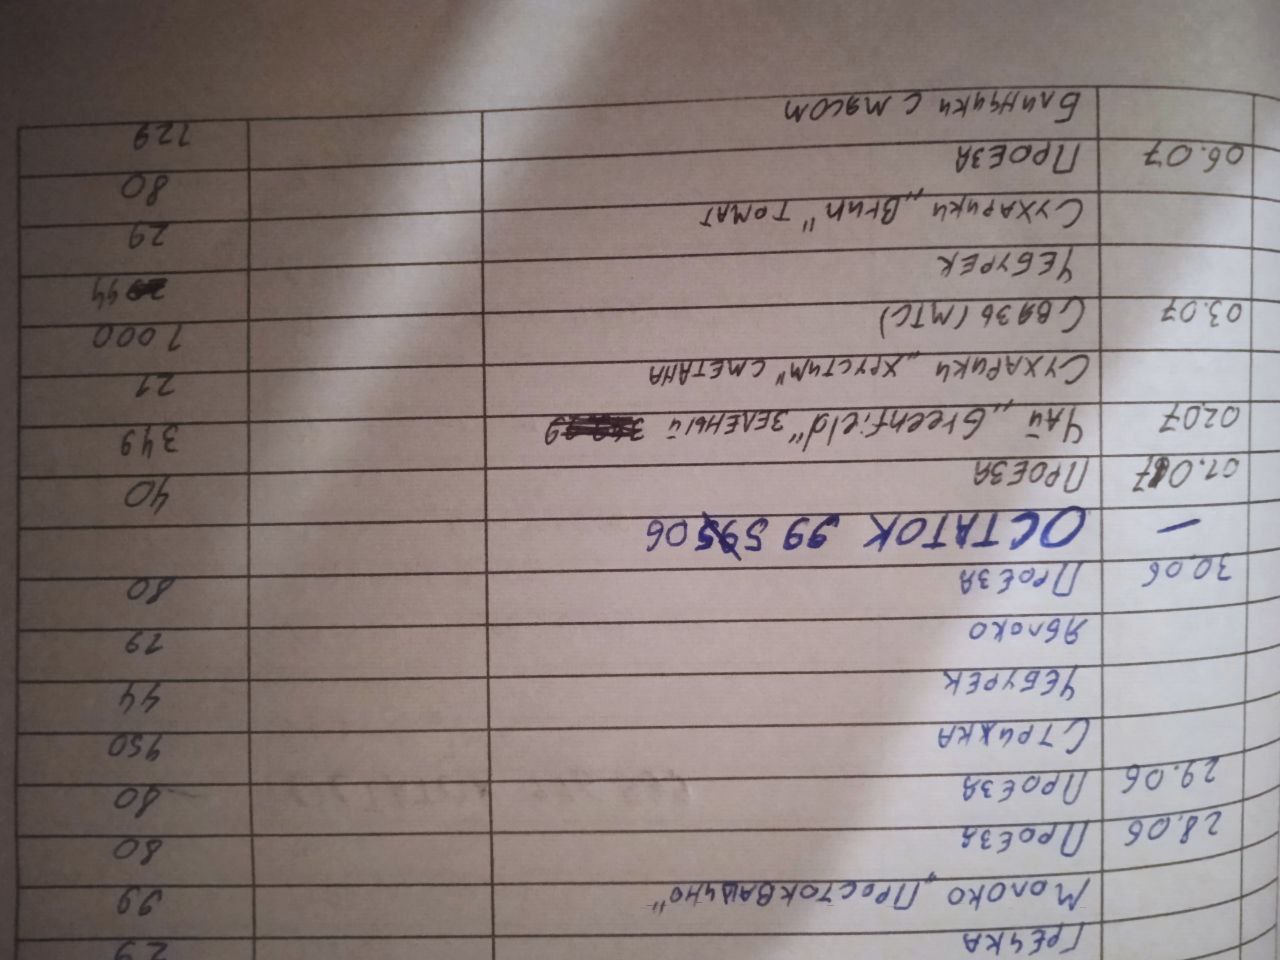 ГРЕЧКА 29
МОЛОКО „ПРОСТОКВАШИНО" 99
28.06 ПРОЕЗД 80
29.06 ПРОЕЗД 80
СТРИЖКА 450
ЧЕБУРЕК 44
ЯБЛОКО 19
30.06 ПРОЕЗД 80
— ОСТАТОК 99
01.07 ПРОЕЗД 40
02.07 ЧАЙ „Greenfield" ЗЕЛЕНЫЙ 349
СУХАРИКИ „ХРУСТИМ" СМЕТАНА 21
03.07 СВЯЗЬ (МТС) 1 000
ЧЕБУРЕК 44
СУХАРИКИ ТОМАТ 29
06.07 ПРОЕЗД 80
БЛИНЧИКИ С МЯСОМ 129